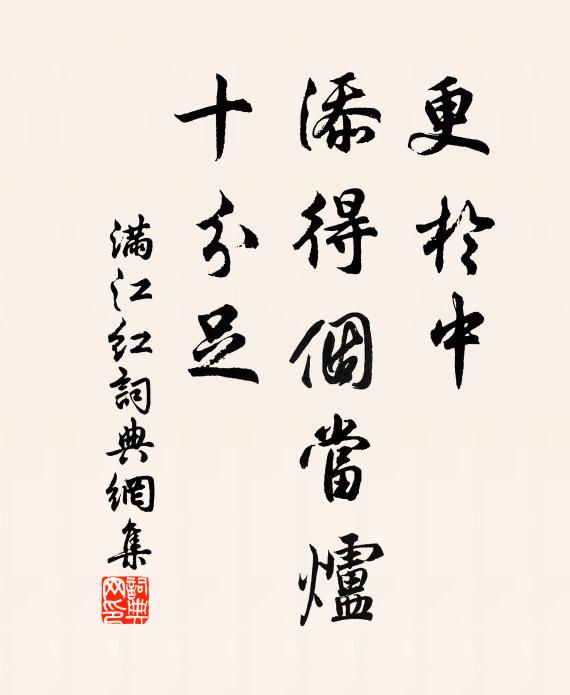 更於中
添得個當爐
十分足
滿江紅詞典網集
詞典网印